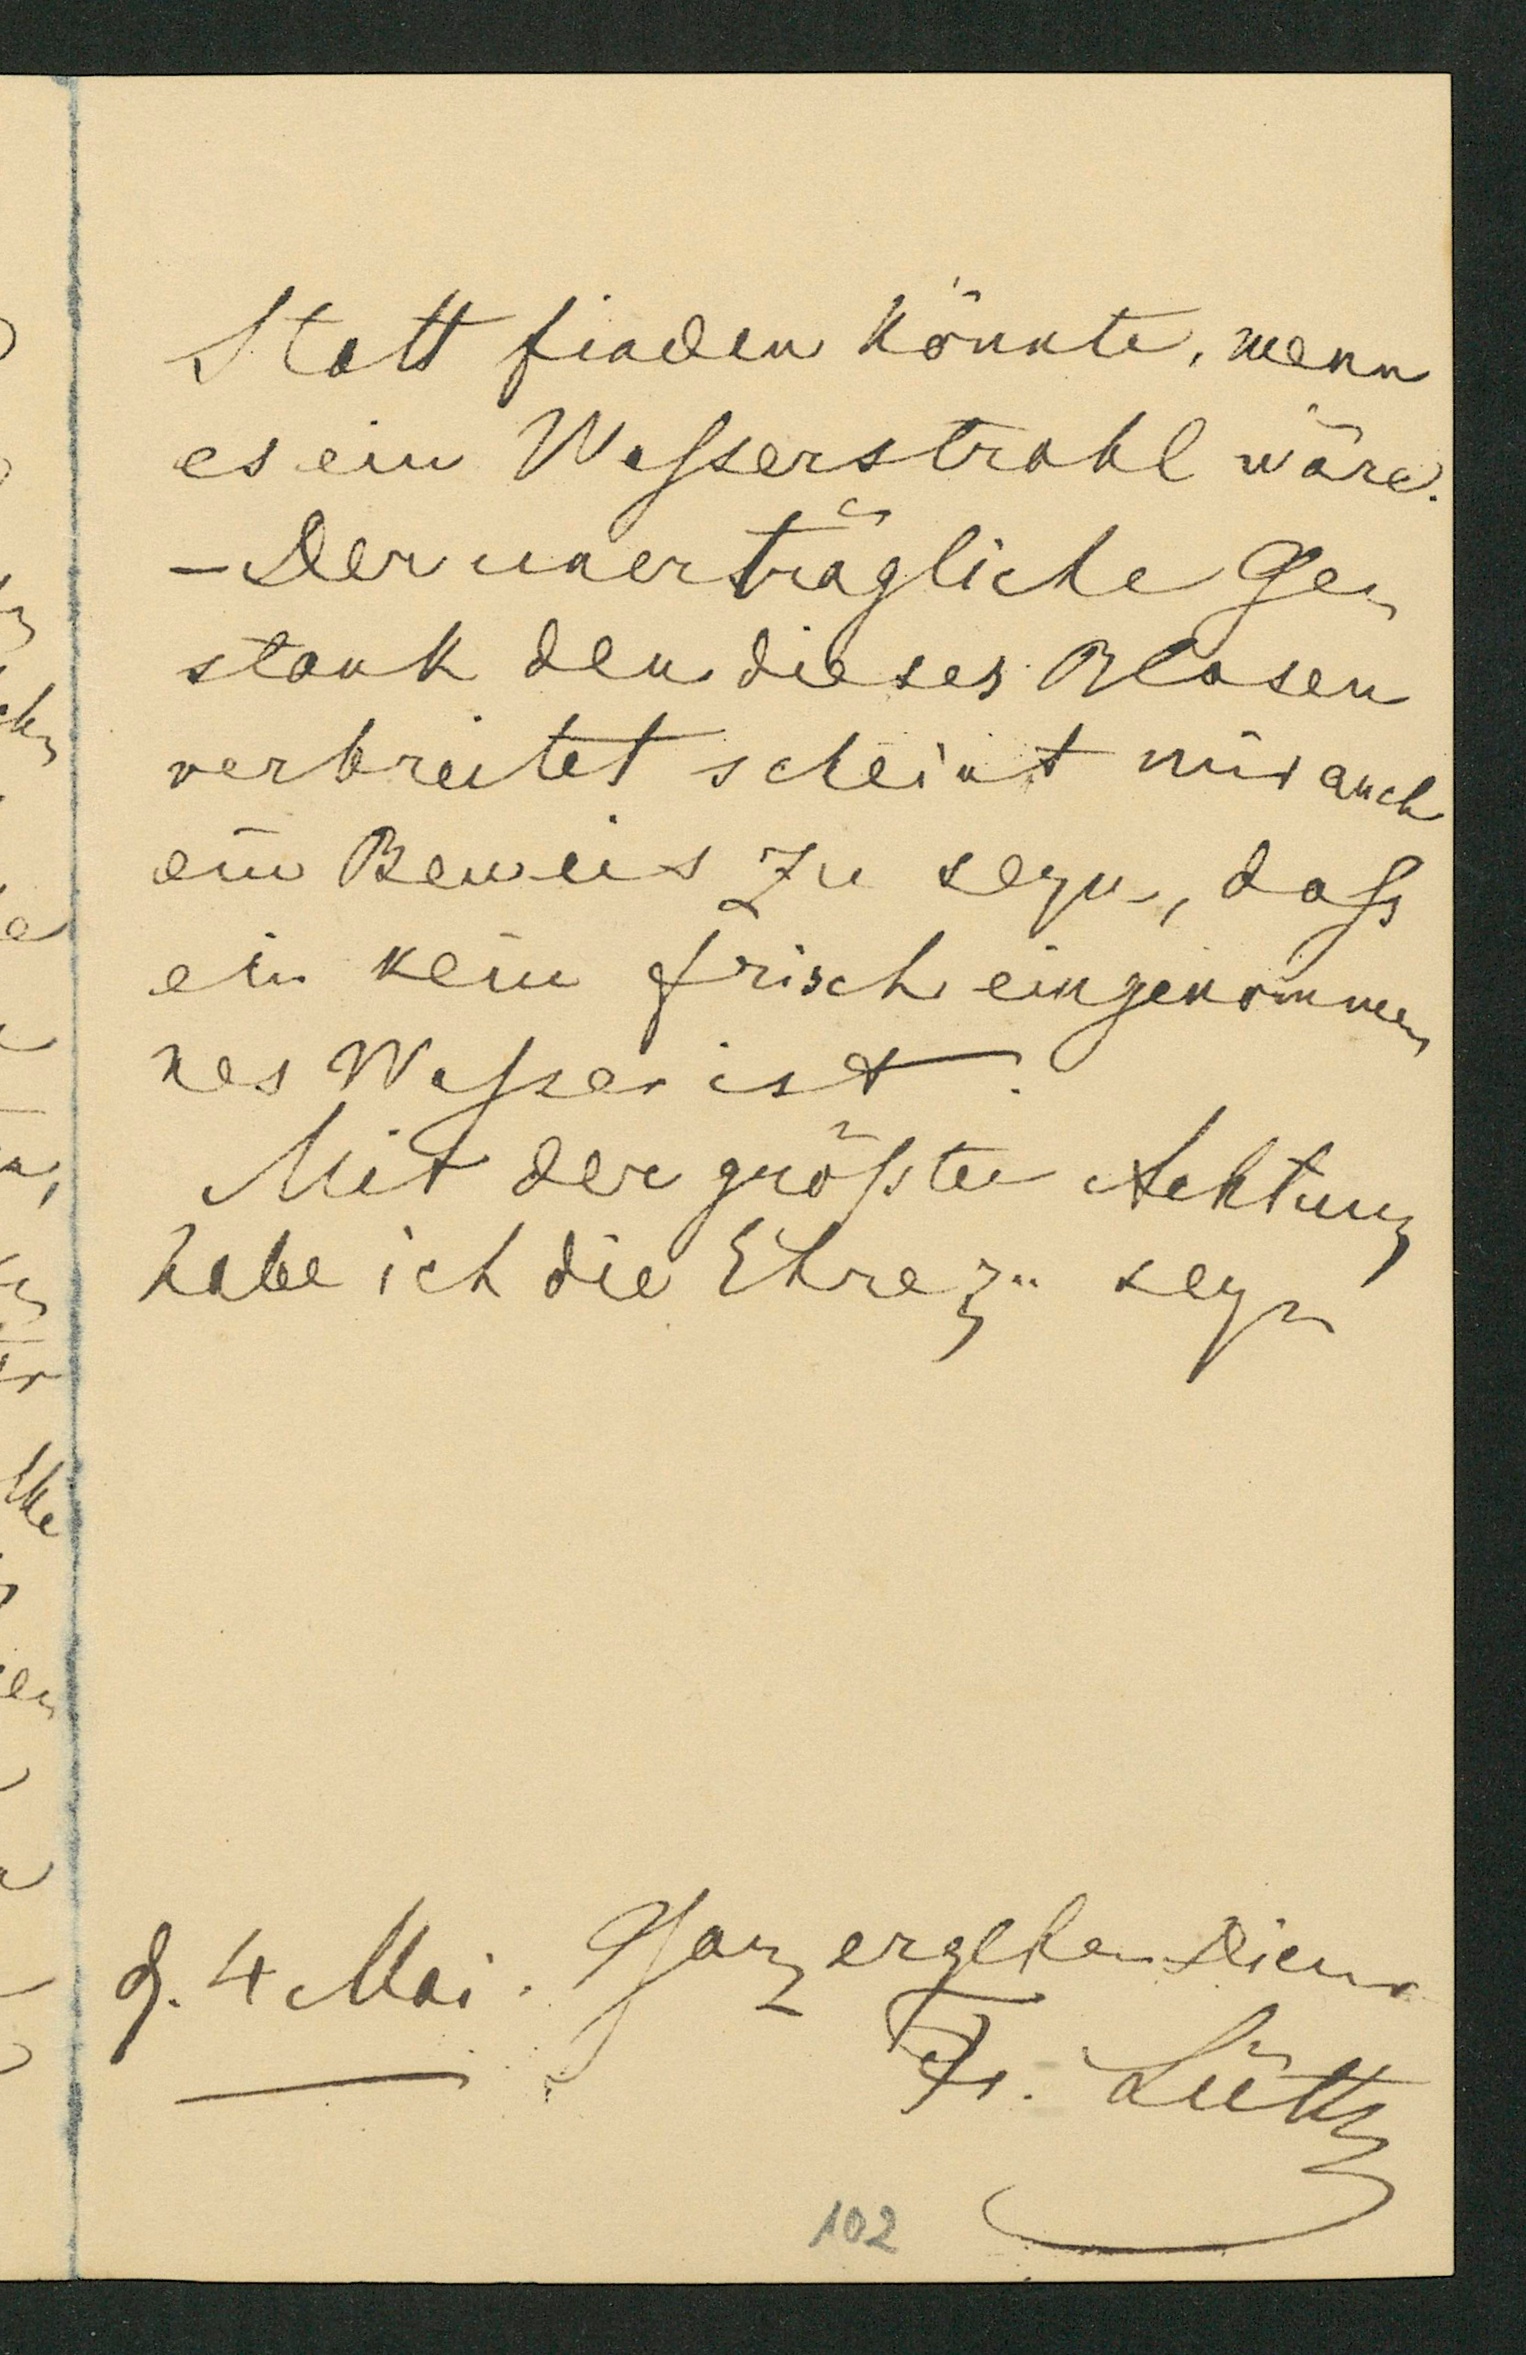 Statt finden könnte, wenn
es ein Wasserstrahl wäre.
– Der unerträgliche Ge-
stank den dieses Blasen
verbreitet scheint mir auch
ein Beweis zu seyn, daß
ein kein frisch eingenomme-
nes Wasser ist.
Mit der größten Achtung
habe ich die Ehre zu seyn
d. 4 Mai. Ganz ergeben Diener
Fr. Lütk
102